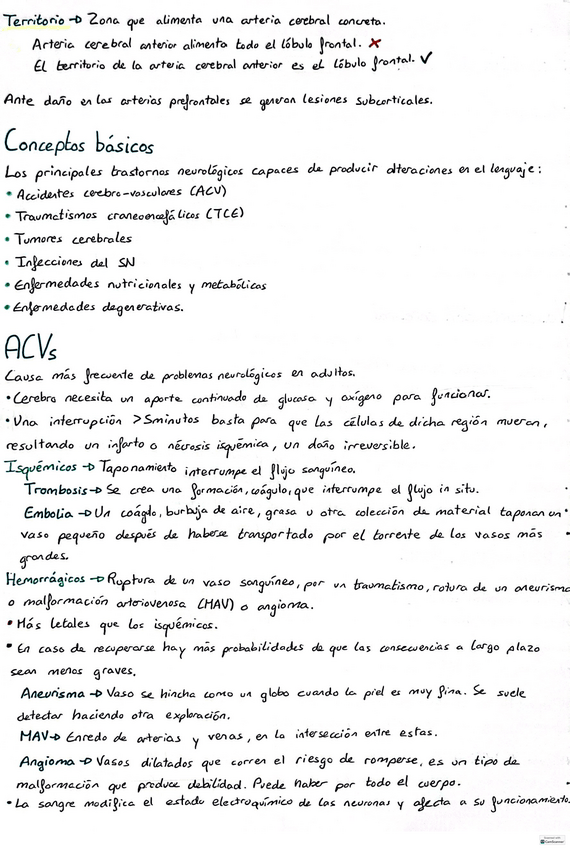 Territorio → Zona que alimenta una arteria cerebral concreta.
Arteria cerebral anterior alimenta todo el lóbulo frontal. ✗
El territorio de la arteria cerebral anterior es el lóbulo frontal. ✓
Ante daño en las arterias prefrontales se generan lesiones subcorticales.
Conceptos básicos
Los principales trastornos neurológicos capaces de producir alteraciones en el lenguaje:
• Accidentes cerebro-vasculares (ACV)
• Traumatismos craneoencefálicos (TCE)
• Tumores cerebrales
• Infecciones del SN
• Enfermedades nutricionales y metabólicas
• Enfermedades degenerativas.
ACVs
Causa más frecuente de problemas neurológicos en adultos.
• Cerebro necesita un aporte continuado de glucosa y oxígeno para funcionar.
• Una interrupción >5minutos basta para que las células de dicha región mueran,
resultando un infarto o nécrosis isquémica, un daño irreversible.
Isquémicos → Taponamiento interrumpe el flujo sanguíneo.
Trombosis → Se crea una formación, coágulo, que interrumpe el flujo in situ.
Embolia → Un coáglo, burbuja de aire, grasa u otra colección de material taponan un
vaso pequeño después de haberse transportado por el torrente de los vasos más
grandes.
Hemorrágicos → Ruptura de un vaso sanguíneo, por un traumatismo, rotura de un aneurisma
o malformación arteriovenosa (MAV) o angioma.
• Más letales que los isquémicos.
• En caso de recuperarse hay más probabilidades de que las consecuencias a largo plazo
sean menos graves.
Aneurisma → Vaso se hincha como un globo cuando la piel es muy fina. Se suele
detectar haciendo otra exploración.
MAV → Enredo de arterias y venas, en la intersección entre estas.
Angioma → Vasos dilatados que corren el riesgo de romperse, es un tipo de
malformación que produce debilidad. Puede haber por todo el cuerpo.
• La sangre modifica el estado electroquímico de las neuronas y afecta a su funcionamiento.
CamScanner